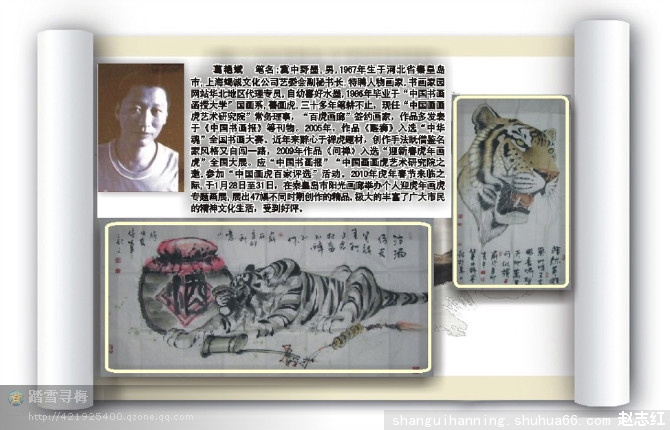 葛艳斌　笔名:冀中野墨,男,1967年生于河北省秦皇岛
市,上海蝎诚文化公司艺委会副秘书长,特聘人物画家,书画家园
网站华北地区代理专员,自幼喜好水墨,1986年毕业于“中国书画
函授大学”国画系,善画虎,三十多年笔耕不止,现任“中国画画
虎艺术研究院”常务理事,“百虎画廊”签约画家,作品多发表
于《中国书画报》等刊物。2005年,作品《醒狮》入选“中华
魂”全国书画大赛。近年来醉心于禅虎题材,创作手法既借鉴名
家风格又自闯一路。2009年作品《问禅》入选“迎新春虎年画
虎”全国大展。应“中国书画报”“中国画画虎艺术研究院之
邀,参加“中国画虎百家评选”活动。2010年虎年春节来临之
际,于1月28日至31日,在秦皇岛市阳光画廊举办个人迎虎年画虎
专题画展,展出47幅不同时期创作的精品,极大的丰富了广大市民
的精神文化生活,受到好评。
酒
踏雪寻梅
http://421925400.qzone.qq.com
shanguihanning.shuhua66.com 赵志红